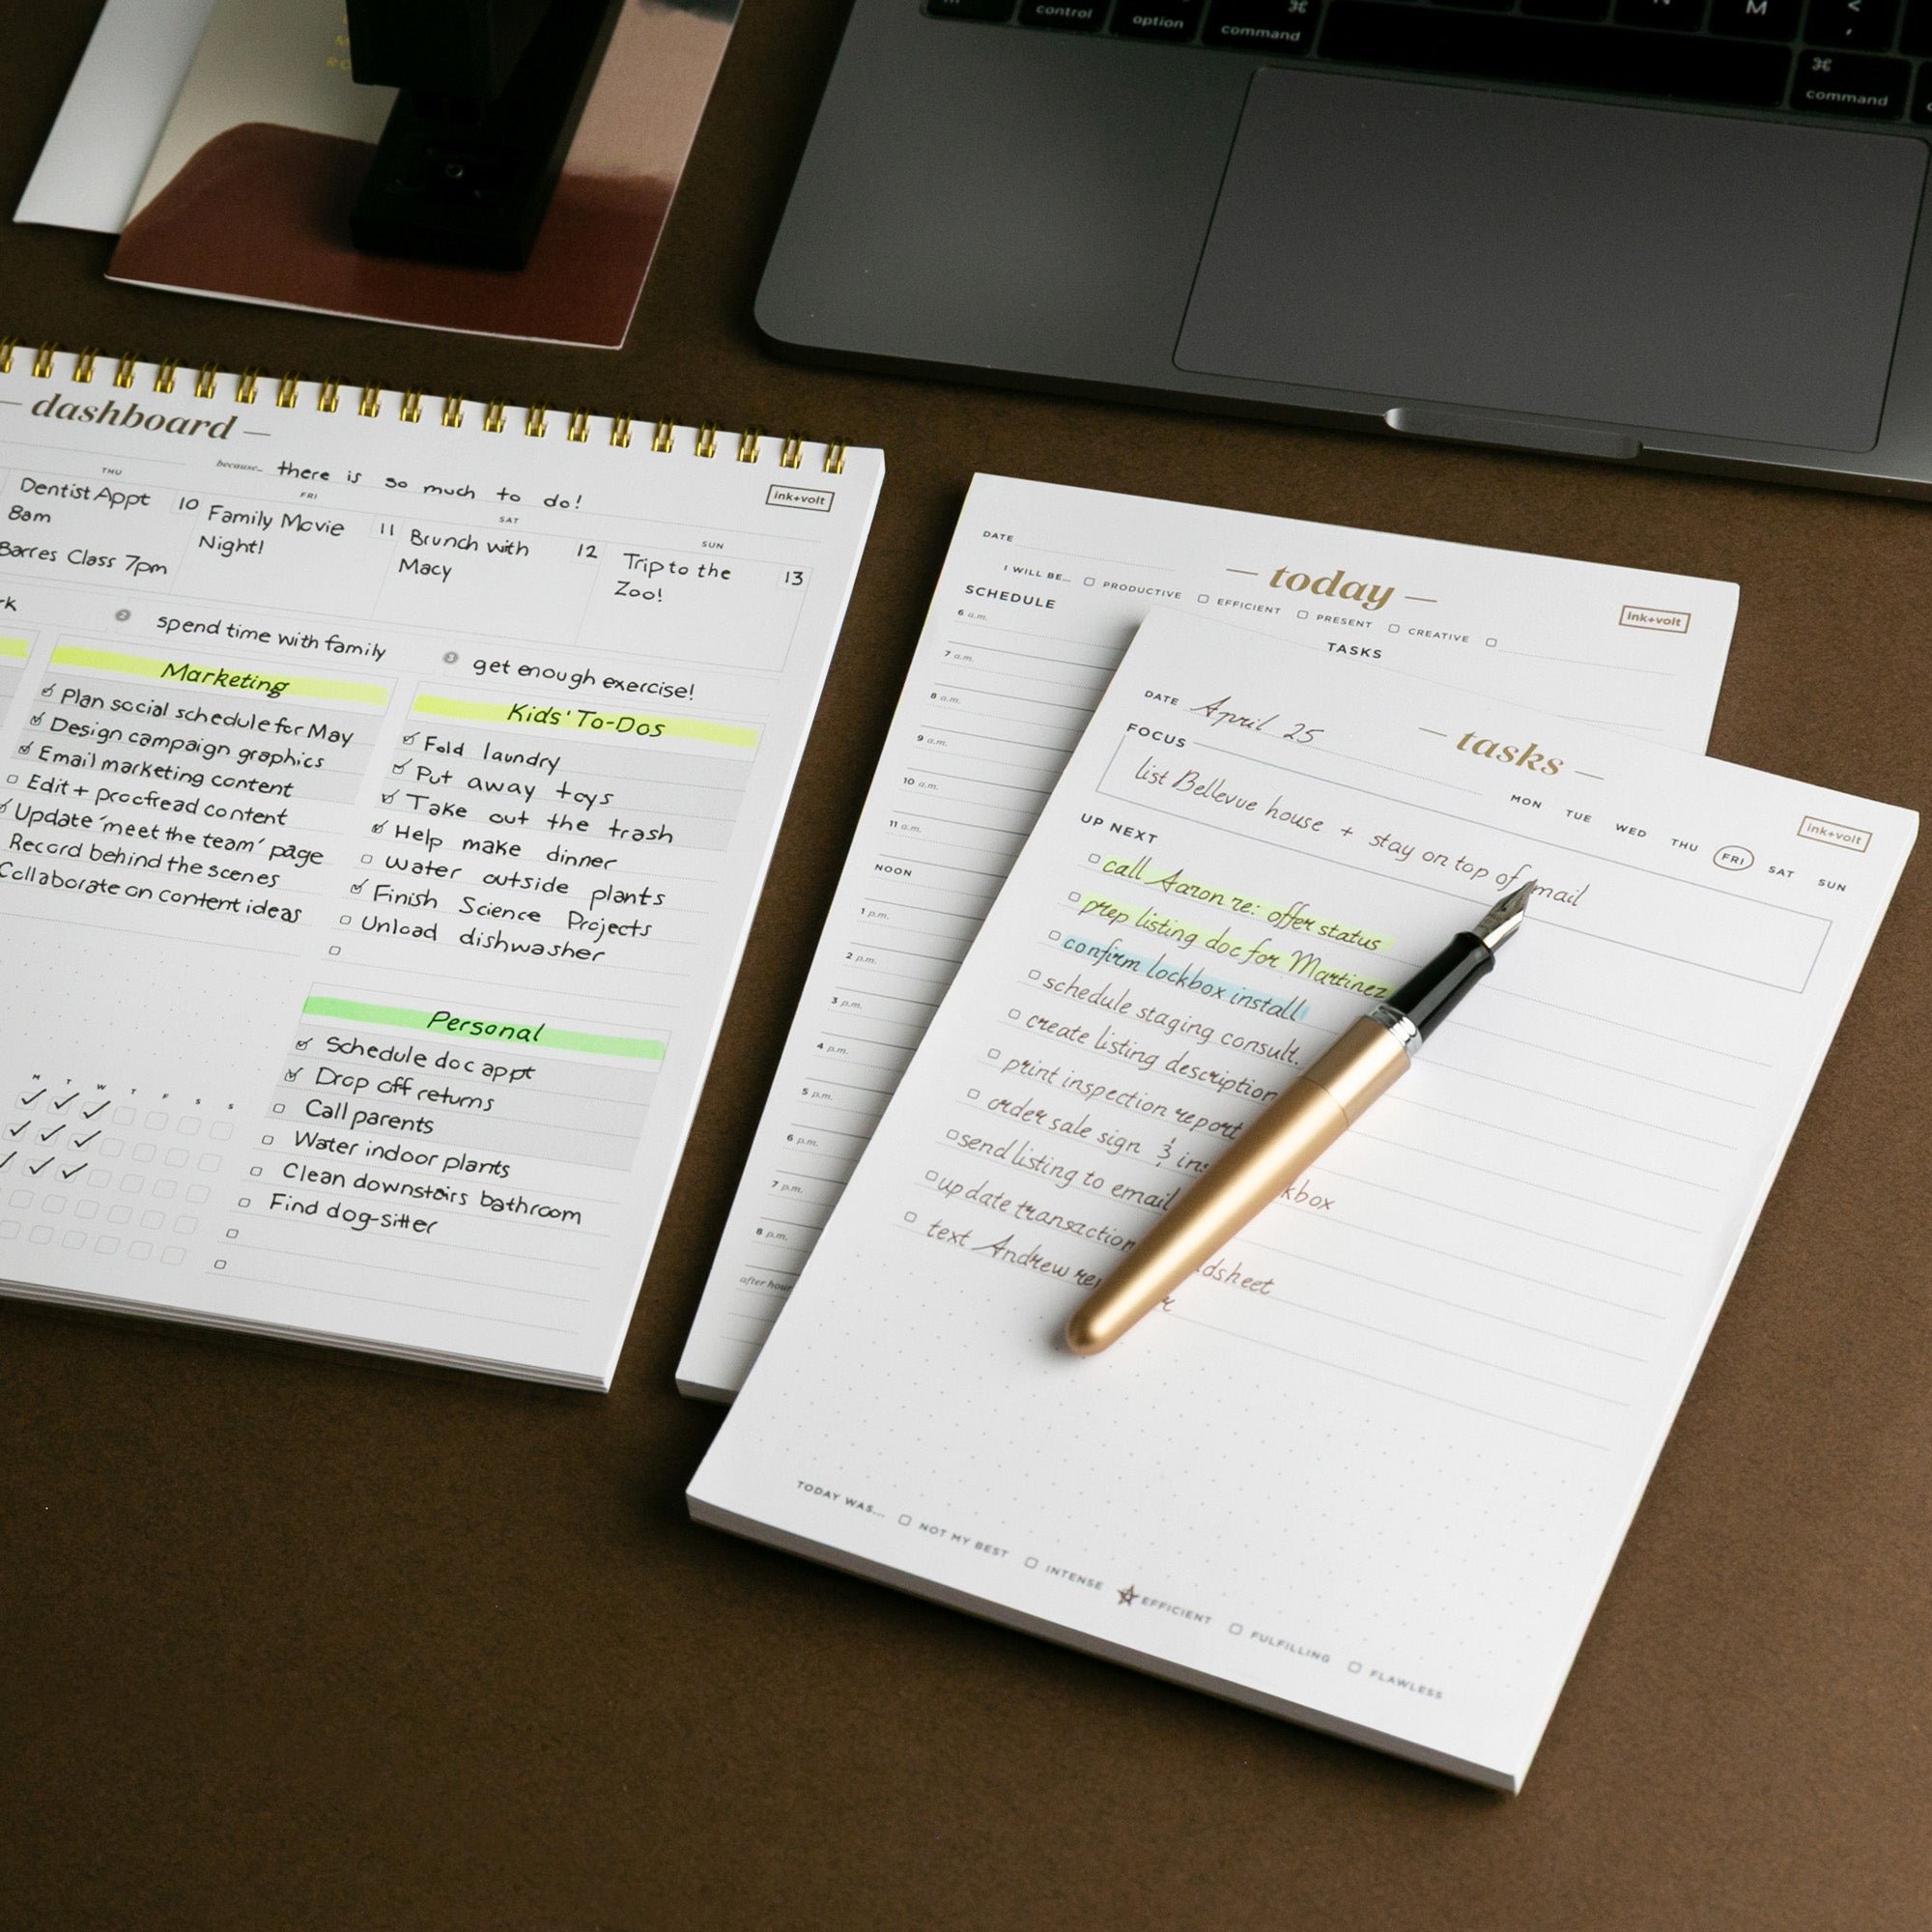 control
option
⌘
command
M
<
,
⌘
command
dashboard
because... there is so much to do!
ink+volt
THU
Dentist Appt
8am
Barres Class 7pm
10
FRI
Family Movie
Night!
11
SAT
Brunch with
Macy
12
SUN
Trip to the
Zoo!
13
2 spend time with family
3 get enough exercise!
Marketing
Plan social schedule for May
Design campaign graphics
Email marketing content
Edit + proofread content
Update 'meet the team' page
Record behind the scenes
Collaborate on content ideas
Kids' To-Dos
Fold laundry
Put away toys
Take out the trash
Help make dinner
Water outside plants
Finish Science Projects
Unload dishwasher
Personal
Schedule doc appt
Drop off returns
Call parents
Water indoor plants
Clean downstairs bathroom
Find dog-sitter
M T W T F S S
DATE
today
ink+volt
I WILL BE... PRODUCTIVE EFFICIENT PRESENT CREATIVE
SCHEDULE
TASKS
6 a.m.
7 a.m.
8 a.m.
9 a.m.
10 a.m.
11 a.m.
NOON
1 p.m.
2 p.m.
3 p.m.
4 p.m.
5 p.m.
6 p.m.
7 p.m.
8 p.m.
after hour
DATE April 25
tasks
ink+volt
MON TUE WED THU FRI SAT SUN
FOCUS
list Bellevue house + stay on top of mail
UP NEXT
call Aaron re: offer status
prep listing doc for Martinez
confirm lockbox install
schedule staging consult.
create listing description
print inspection report
order sale sign & ins kbox
send listing to email
update transaction dsheet
text Andrew re
TODAY WAS... NOT MY BEST INTENSE EFFICIENT FULFILLING FLAWLESS